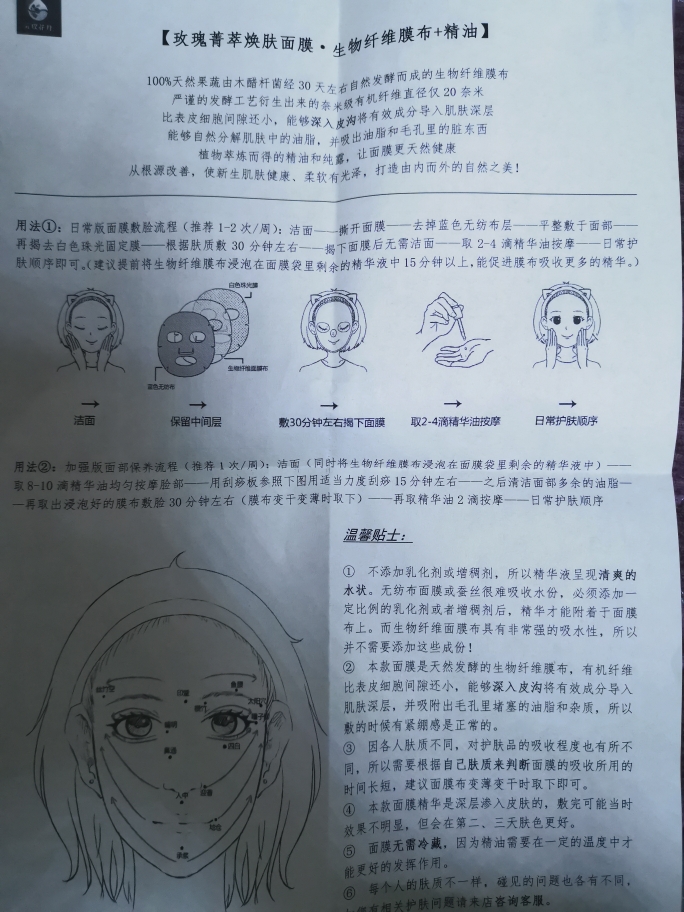 【玫瑰菁萃焕肤面膜·生物纤维膜布+精油】
100%天然果蔬由木醋杆菌经30天左右自然发酵而成的生物纤维膜布
严谨的发酵工艺衍生出来的奈米级有机纤维直径仅20奈米
比表皮细胞间隙还小，能够深入皮沟将有效成分导入肌肤深层
能够自然分解肌肤中的油脂，并吸出油脂和毛孔里的脏东西
植物萃炼而得的精油和纯露，让面膜更天然健康
从根源改善，使新生肌肤健康、柔软有光泽，打造由内而外的自然之美！
用法①：日常版面膜敷脸流程（推荐1-2次/周）；洁面——撕开面膜——去掉蓝色无纺布层——平整敷于面部——
再揭去白色珠光固定膜——根据肤质敷30分钟左右——揭下面膜后无需洁面——取2-4滴精华油按摩——日常护
肤顺序即可。（建议提前将生物纤维膜布浸泡在面膜袋里剩余的精华液中15分钟以上，能促进膜布吸收更多的精华。）
白色珠光膜
生物纤维面膜布
蓝色无纺布
洁面
保留中间层
敷30分钟左右揭下面膜
取2-4滴精华油按摩
日常护肤顺序
用法②：加强版面部保养流程（推荐1次/周）；洁面（同时将生物纤维膜布浸泡在面膜袋里剩余的精华液中）——
取8-10滴精华油均匀按摩脸部——用刮痧板参照下图用适当力度刮痧15分钟左右——之后清洁面部多余的油脂—
—再取出浸泡好的膜布敷脸30分钟左右（膜布变干变薄时取下）——再取精华油2滴按摩——日常护肤顺序
温馨贴士：
① 不添加乳化剂或增稠剂，所以精华液呈现清爽的
水状。无纺布面膜或蚕丝很难吸收水份，必须添加一
定比例的乳化剂或者增稠剂后，精华才能附着于面膜
布上。而生物纤维面膜布具有非常强的吸水性，所以
并不需要添加这些成份！
② 本款面膜是天然发酵的生物纤维膜布，有机纤维
比表皮细胞间隙还小，能够深入皮沟将有效成分导入
肌肤深层，并吸附出毛孔里堵塞的油脂和杂质，所以
敷的时候有紧绷感是正常的。
③ 因各人肤质不同，对护肤品的吸收程度也有所不
同，所以需要根据自己肤质来判断面膜的吸收所用的
时间长短，建议面膜布变薄变干时取下即可。
④ 本款面膜精华是深层渗入皮肤的，敷完可能当时
效果不明显，但会在第二、三天肤色更好。
⑤ 面膜无需冷藏，因为精油需要在一定的温度中才
能更好的发挥作用。
⑥ 每个人的肤质不一样，碰见的问题也各有不同，
相关护肤问题请来店咨询客服。
印堂
鱼腰
太阳
睛明
四白
鼻通
人中
迎香
地仓
承浆